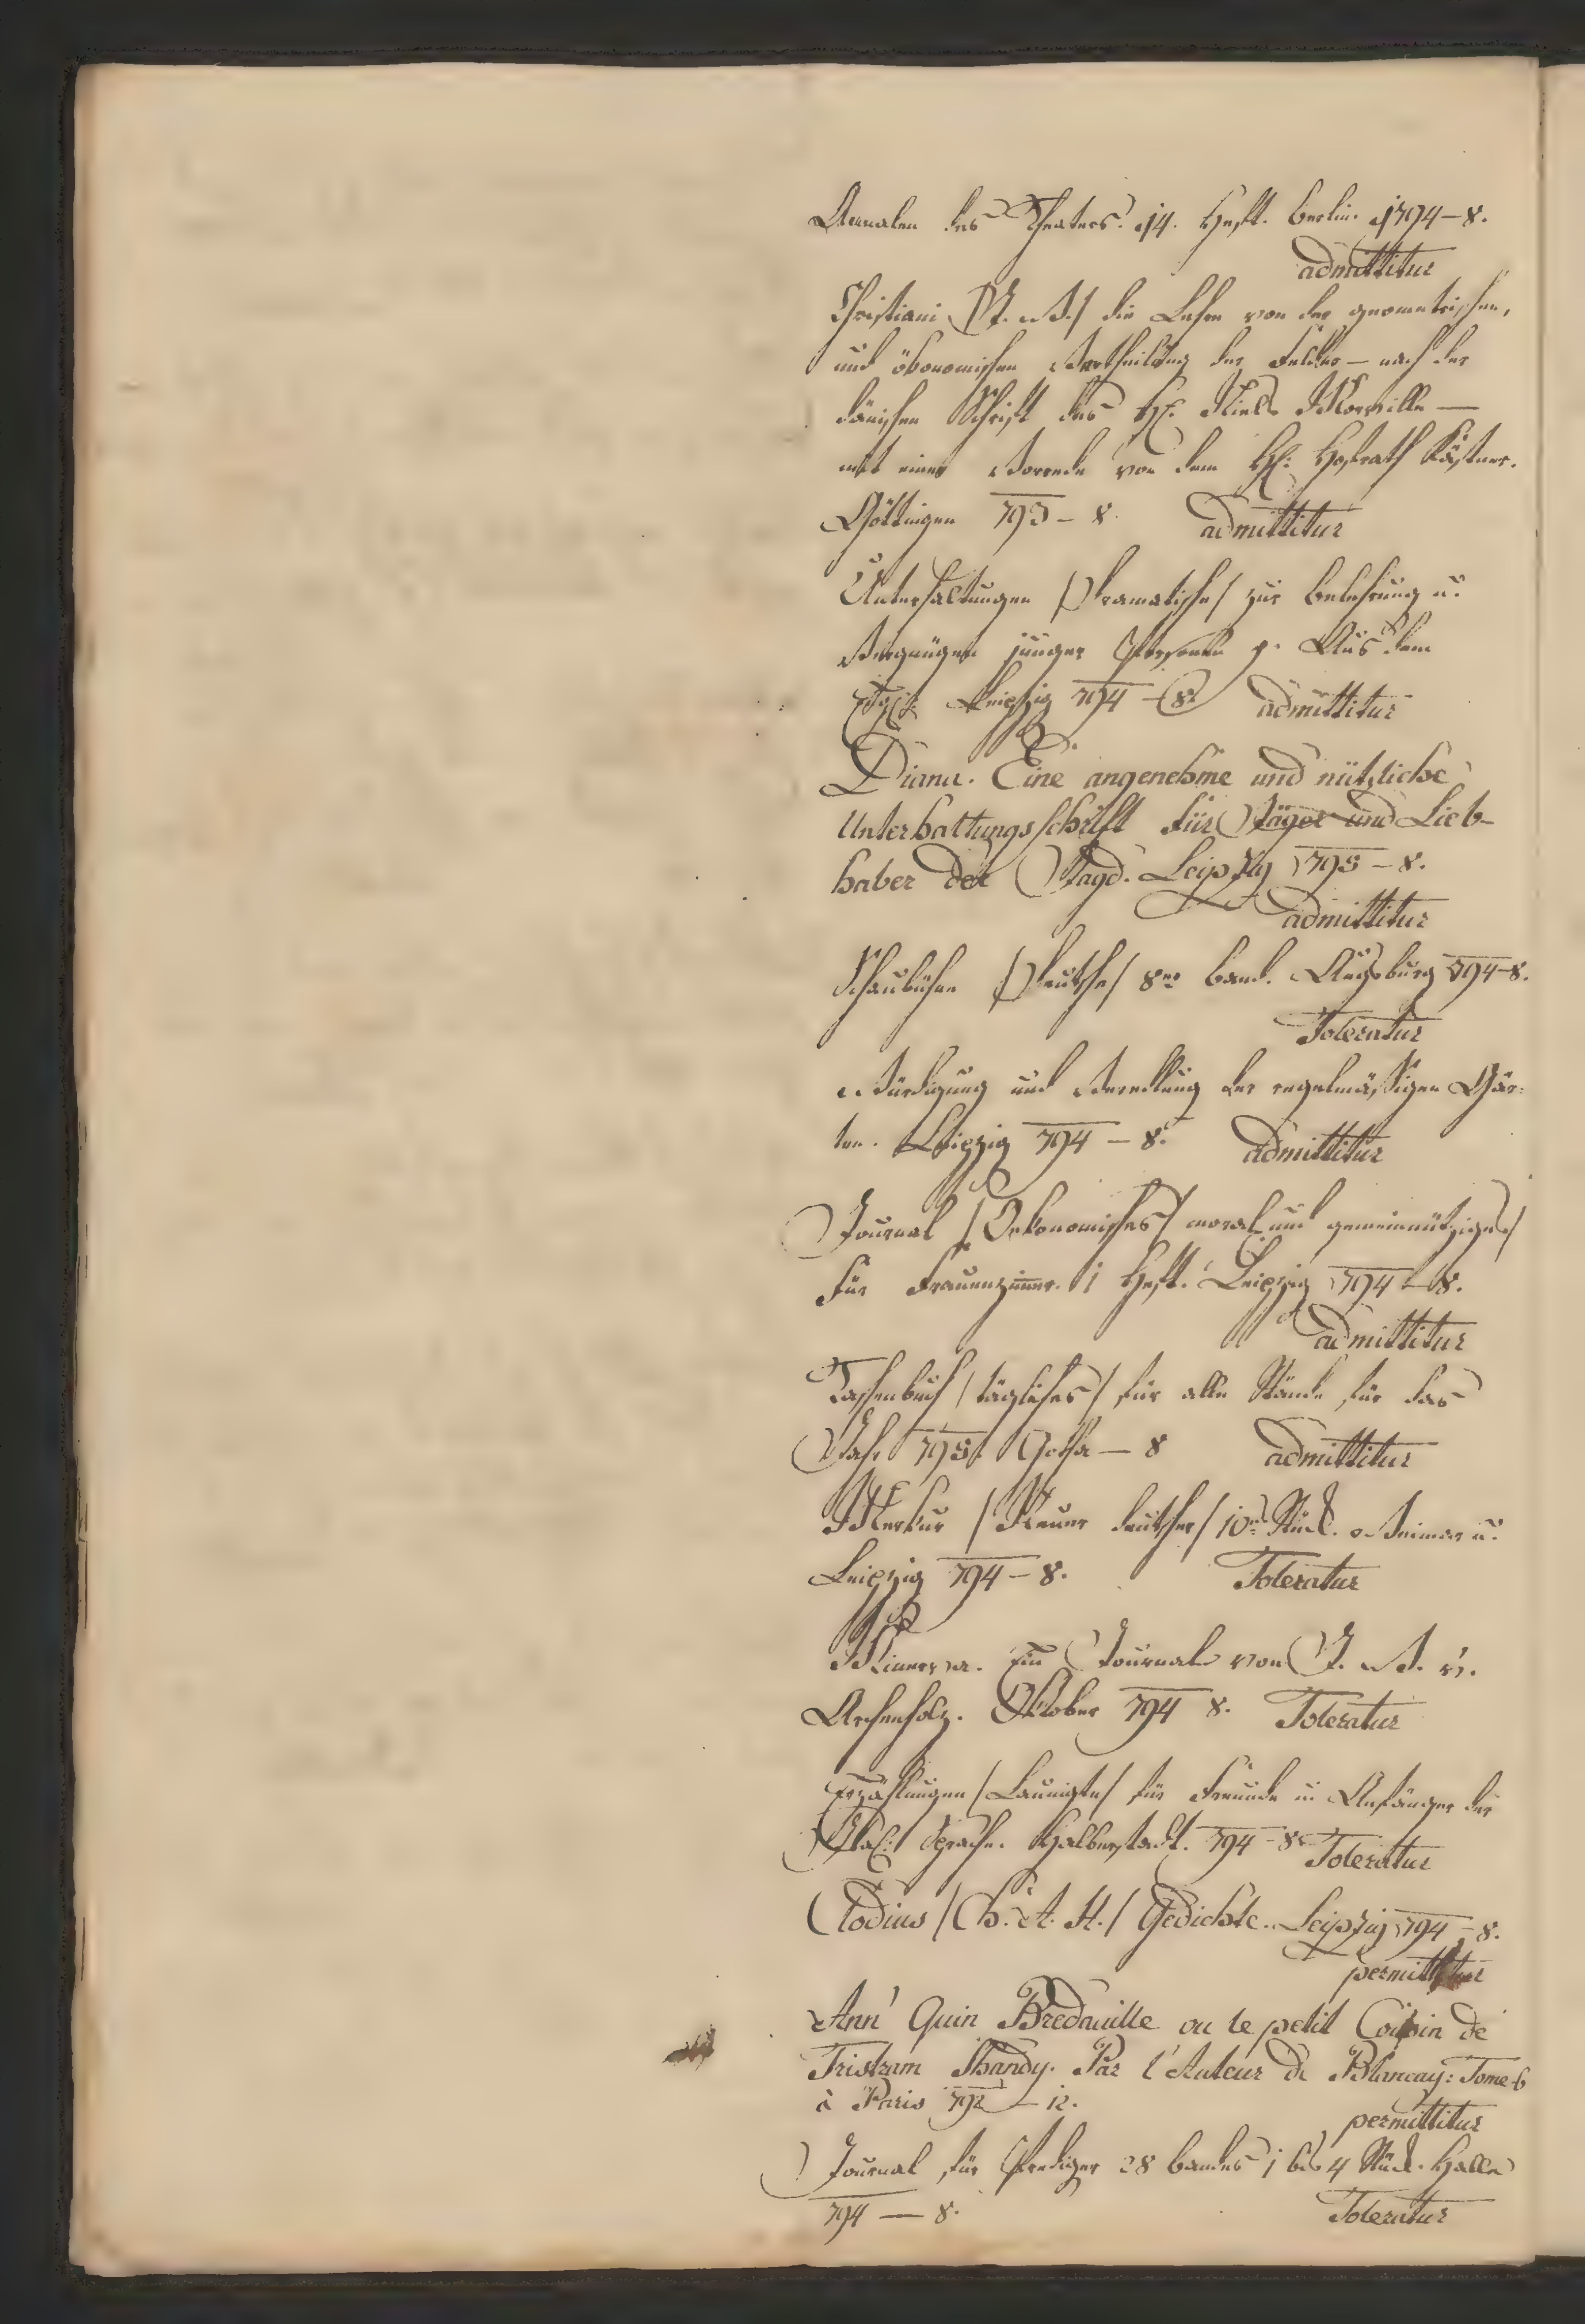 Annalen des Theaters. 14. Heft. Berlin. 1794 – 8.
admittitur
Christiani (J. W.) die Lehre von der geometrischen,
und ökonomischen Vertheilung der Felder – nach der
dänischen Schrift des H: Niels Morville –
mit einer Vorrede von dem H: Hofrath Kästner.
Göttingen 793 – 8. admittitur
Unterhaltungen /Dramatische/ zur Belehrung u.
Vergnügen junger Personen p. Aus dem
Leipzig 794 – 8. admittitur
Diana. Eine angenehme und nützliche
Unterhaltungsschrift für Jäger und Lieb-
haber der Jagd. Leipzig 795 – 8.
admittitur
Schaubühne /Deutsche/ 8ter Band. Augsburg 794 – 8.
Toleratur
Würdigung und Veredlung der regelmäßigen Gär-
ten. Leipzig 794 – 8. admittitur
Journal /Oekonomisches/ moral: und gemeinnütziges/
für Frauenzimer. 1 Heft. Leipzig 794 – 8.
admittitur
Taschenbuch /tägliches/ für alle Stände für das
Jahr 795. Gotha – 8 admittitur
Merkur /Neuer deutscher/ 10tes Stück. Weimar u.
Leipzig 794 – 8. Toleratur
Minerva. Ein Journal von J. W. v.
Archenholz. Oktober 794 8. Toleratur
Erzählungen /Launigte/ für Freunde u: Anfänger der
Ital: Sprache. Halberstadt. 794 – 8 Toleratur
Clodius /Ch. A. H./ Gedichte. Leipzig 794 – 8.
permittitur
Ann' Quin Bredouille ou le petit Cousin de
Tristram Shandy. Par l'Auteur de Blancay: Tome 6
à Paris 792 – 12.
permittitur
Journal für Prediger 28 Bandes 1 bis 4 Stück. Halle
794 – 8. Toleratur